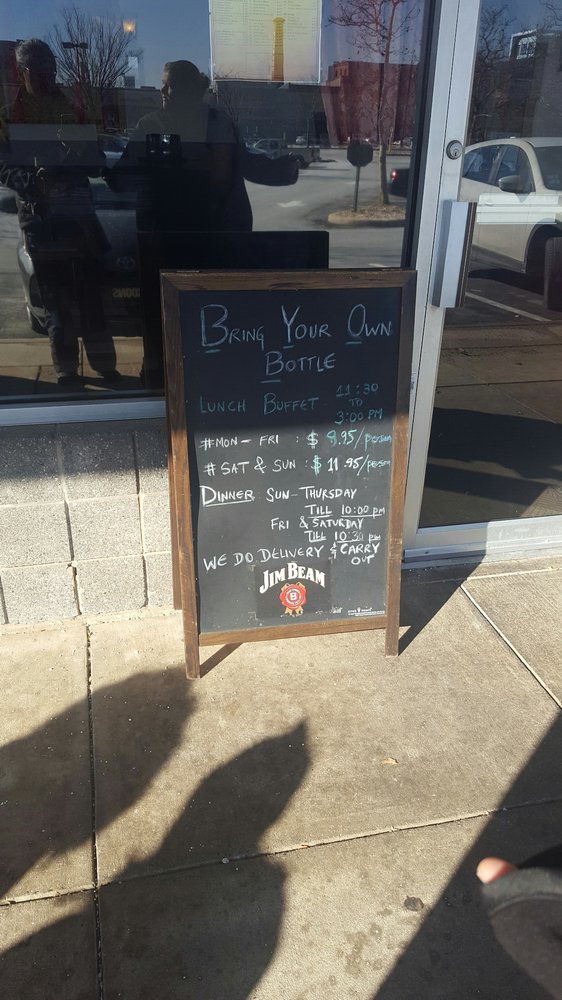 Bring Your Own
Bottle
Lunch Buffet - 11:30
TO
3:00 PM
#MON - FRI : $ 8.95/person
#SAT & SUN : $ 11.95/person
DINNER SUN - THURSDAY
TILL 10:00 pm
FRI & SATURDAY
TILL 10:30 pm
WE DO DELIVERY & CARRY
OUT
JIM BEAM
B